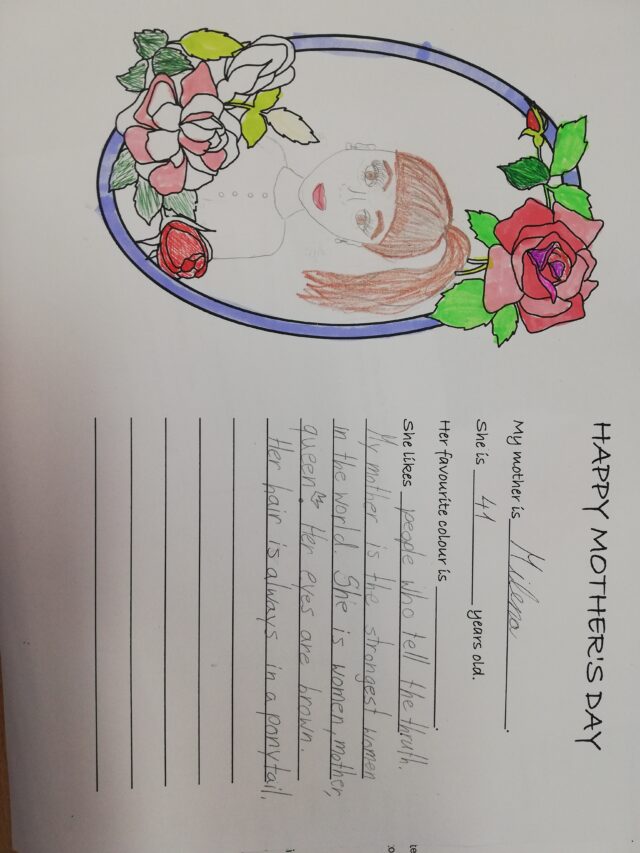 HAPPY MOTHER'S DAY
My mother is Milena.
She is 41 years old.
Her favourite colour is.
She likes people who tell the thruth.
My mother is the strongest women
in the world. She is women, mother,
queen. Her eyes are brown.
Her hair is always in a ponytail.